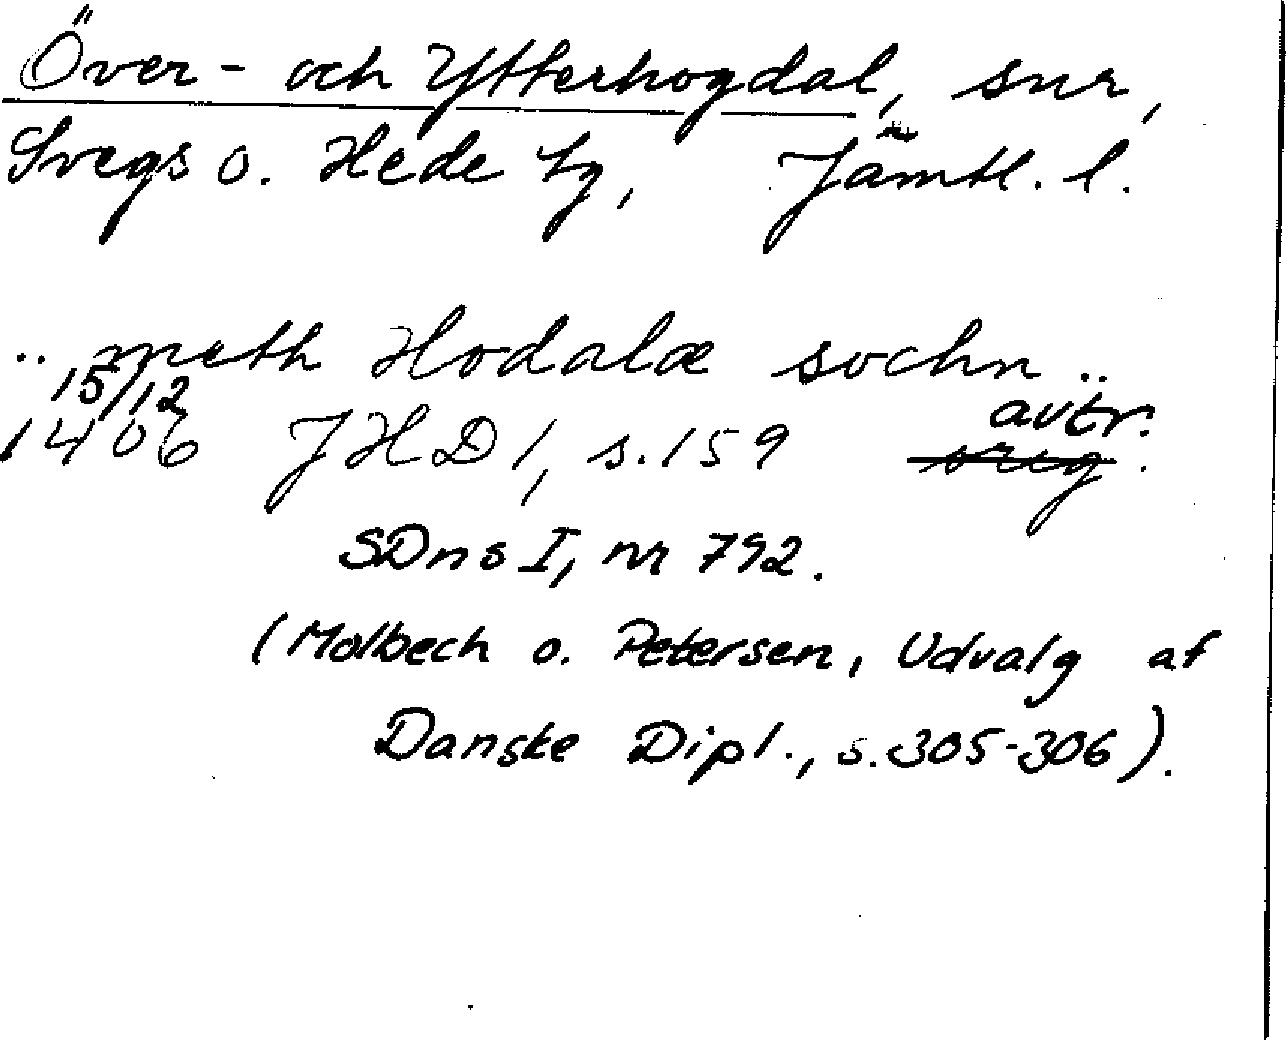 Över- och Ytterhogdal, snr,
Svegs o. Hede tg, Jämtl. l.
.. meth Hodalæ sochn ..
15/12
1406 JHD 1, s. 159 avtr.
orig.
SDns I, nr 792.
(Molbech o. Petersen, Udvalg af
Danske Dipl., s. 305-306).